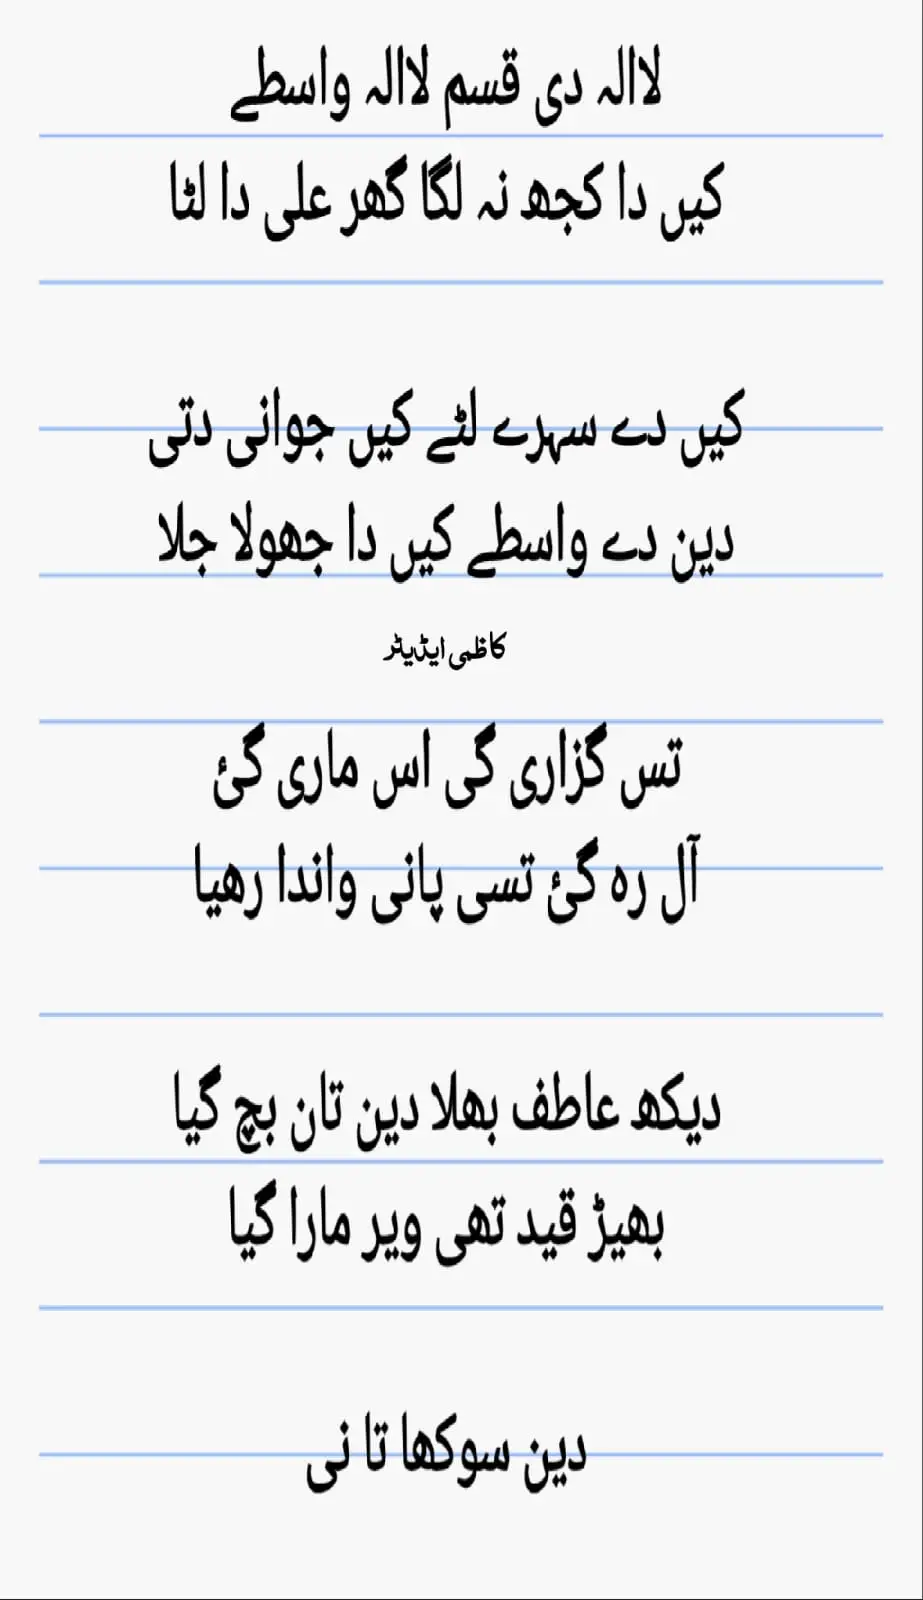 لاالہ دی قسم لاالہ واسطے
کیں دا کجھ نہ لگا گھر علی دا لٹا
کیں دے سہرے لٹے کیں جوانی دتی
دین دے واسطے کیں دا جھولا جلا
کاظمی ایڈیٹر
تس گزاری گی اس ماری گئ
آل رہ گئ تسی پانی واندا رھیا
دیکھ عاطف بھلا دین تان بچ گیا
بھیڑ قید تھی ویر مارا گیا
دین سوکھا تا نی